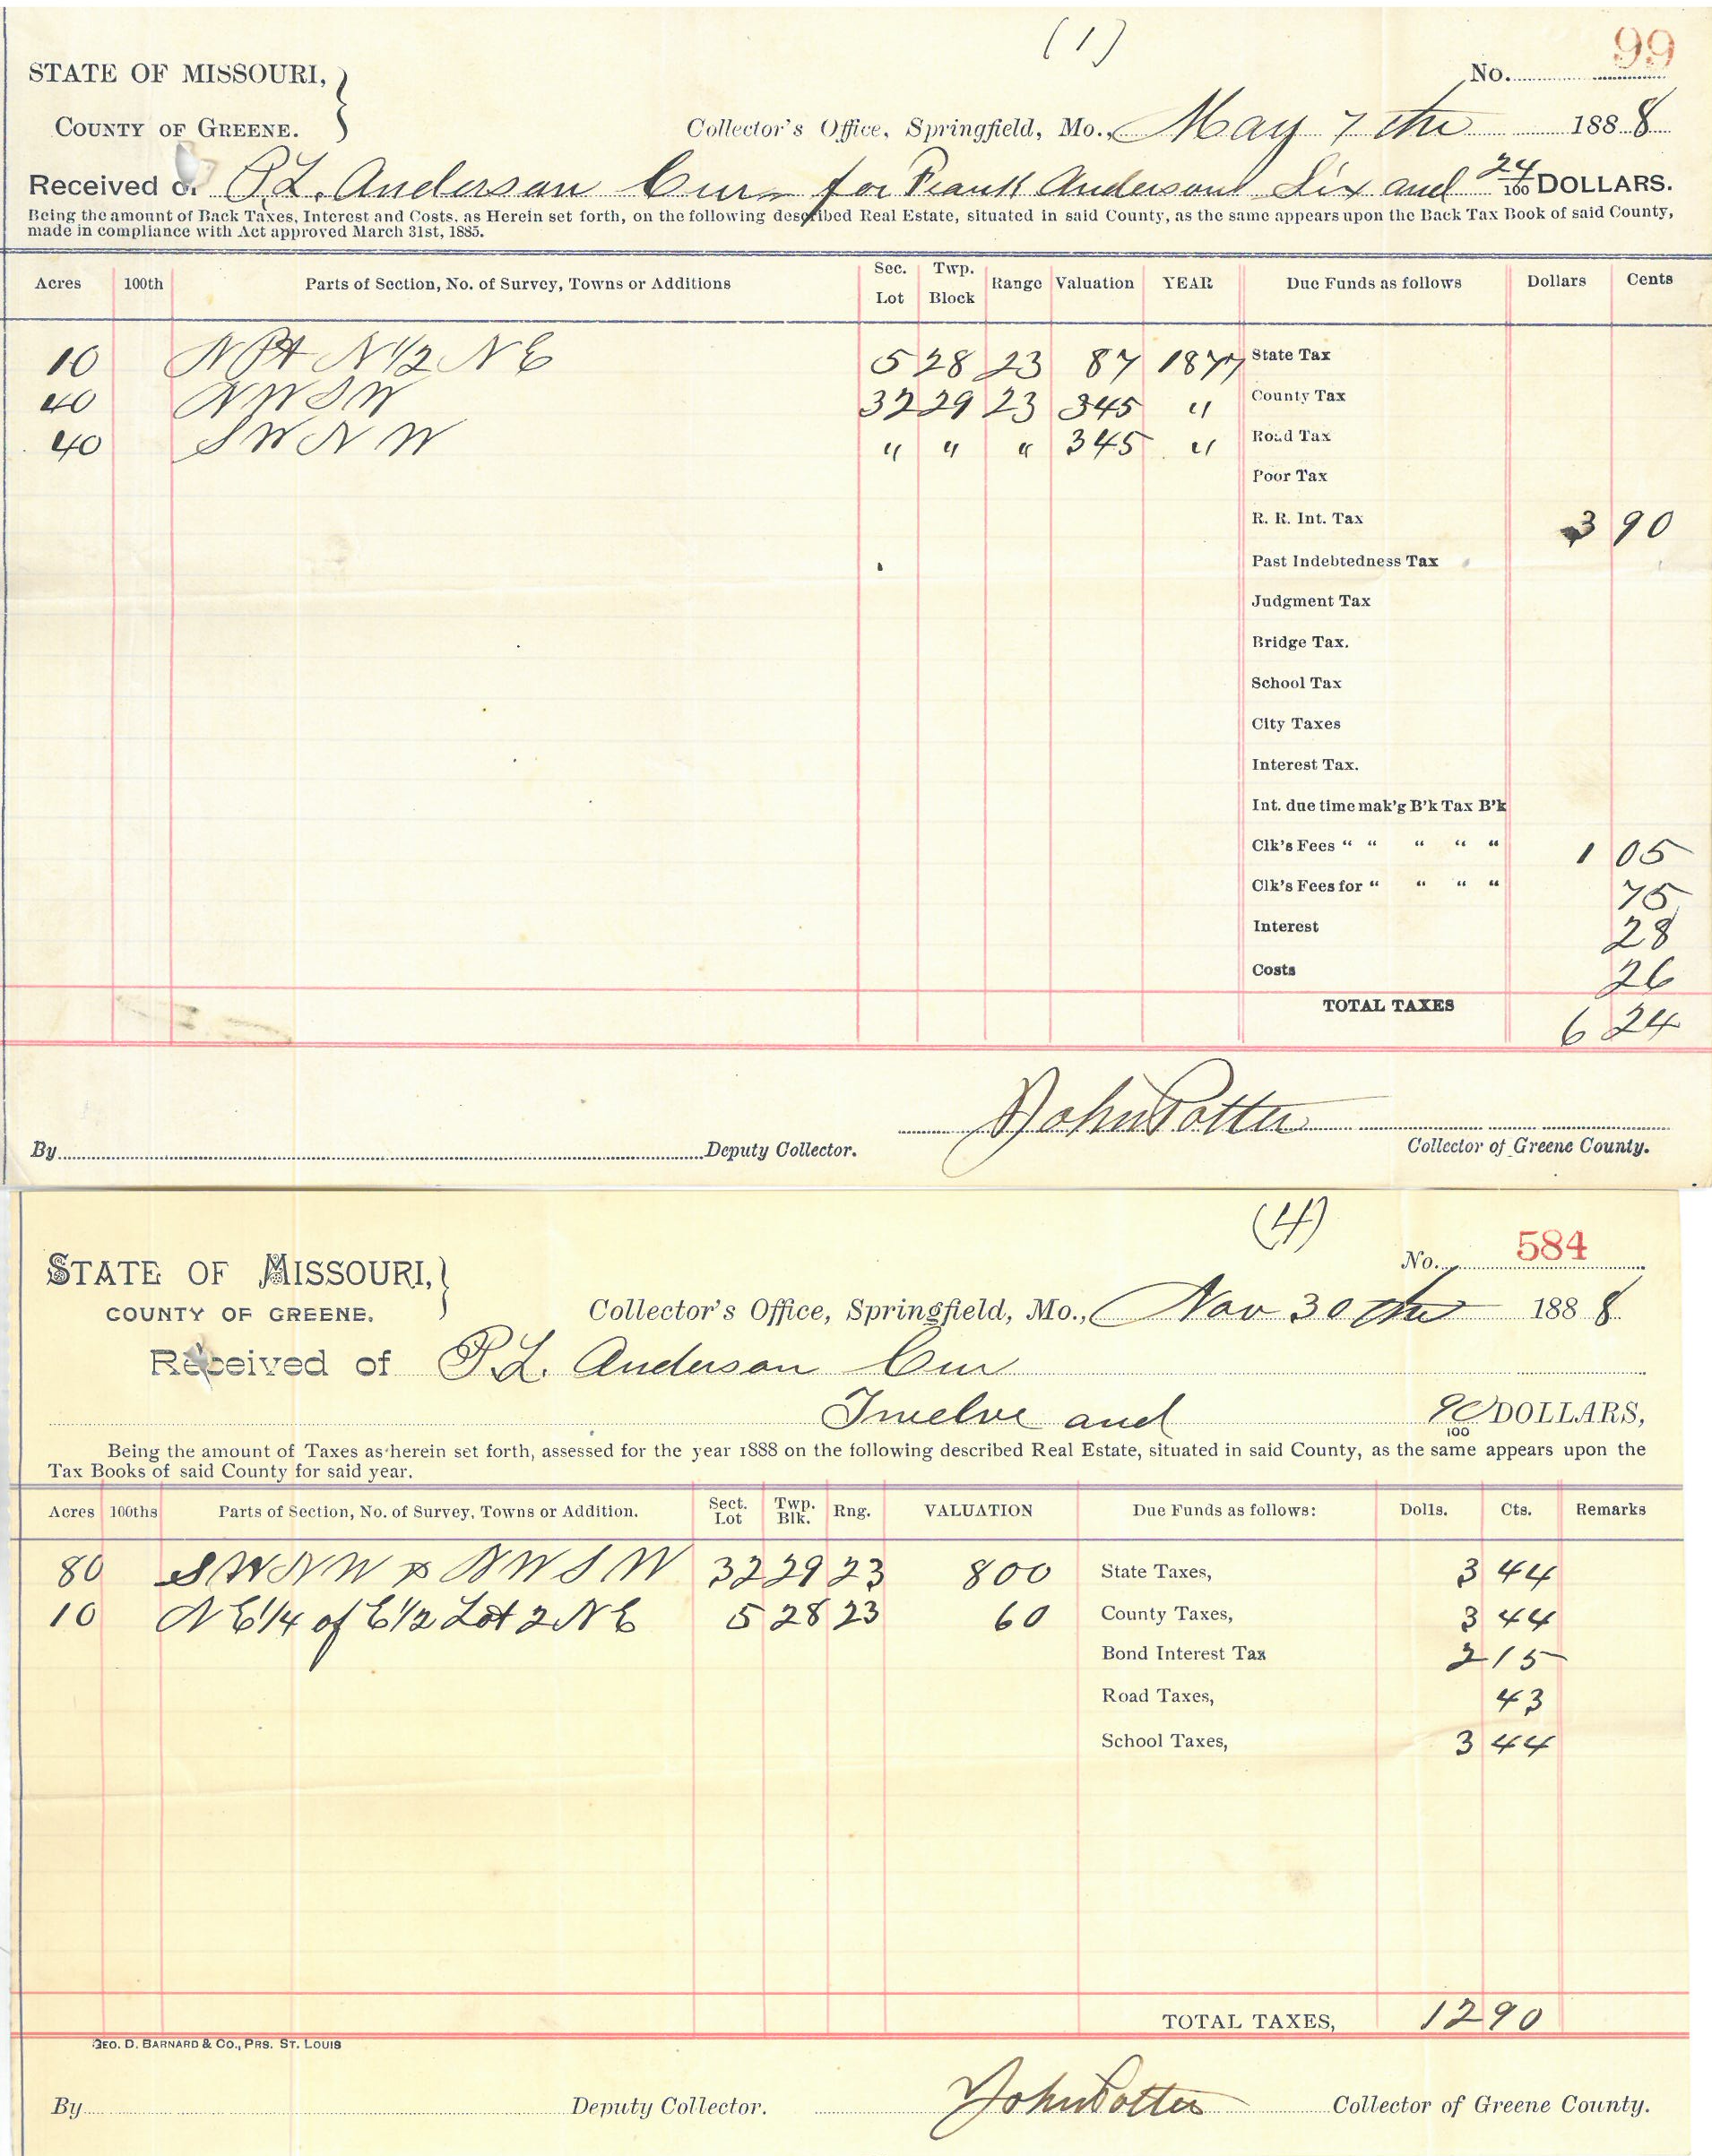 (1)
No. 99
STATE OF MISSOURI, }
COUNTY OF GREENE.
Collector's Office, Springfield, Mo., May 7th 1888
Received of P.L. Anderson Cur for Frank Anderson Six and 24/100 DOLLARS.
Being the amount of Back Taxes, Interest and Costs, as Herein set forth, on the following described Real Estate, situated in said County, as the same appears upon the Back Tax Book of said County,
made in compliance with Act approved March 31st, 1885.
Acres 100th Parts of Section, No. of Survey, Towns or Additions Sec. Lot Twp. Block Range Valuation YEAR Due Funds as follows Dollars Cents
10 N Pt N 1/2 N E 5 28 23 87 1877 State Tax
40 N W S W 32 29 23 345 " County Tax
40 S W N W " " " 345 " Road Tax
Poor Tax
R. R. Int. Tax 3 90
Past Indebtedness Tax
Judgment Tax
Bridge Tax.
School Tax
City Taxes
Interest Tax.
Int. due time mak'g B'k Tax B'k
Clk's Fees " " " " " 1 05
Clk's Fees for " " " " 75
Interest 28
Costs 26
TOTAL TAXES 6 24
By Deputy Collector. John Potter Collector of Greene County.
(4)
No. 584
STATE OF MISSOURI, }
COUNTY OF GREENE.
Collector's Office, Springfield, Mo., Nov 30th 1888
Received of P.L. Anderson Cur
Twelve and 90/100 DOLLARS,
Being the amount of Taxes as herein set forth, assessed for the year 1888 on the following described Real Estate, situated in said County, as the same appears upon the
Tax Books of said County for said year.
Acres 100ths Parts of Section, No. of Survey, Towns or Addition. Sect. Lot Twp. Blk. Rng. VALUATION Due Funds as follows: Dolls. Cts. Remarks
80 S W N W & N W S W 32 29 23 800 State Taxes, 3 44
10 N E 1/4 of E 1/2 Lot 2 N E 5 28 23 60 County Taxes, 3 44
Bond Interest Tax 2 15
Road Taxes, 43
School Taxes, 3 44
TOTAL TAXES, 12 90
GEO. D. BARNARD & CO., PRS. ST. LOUIS
By Deputy Collector. John Potter Collector of Greene County.